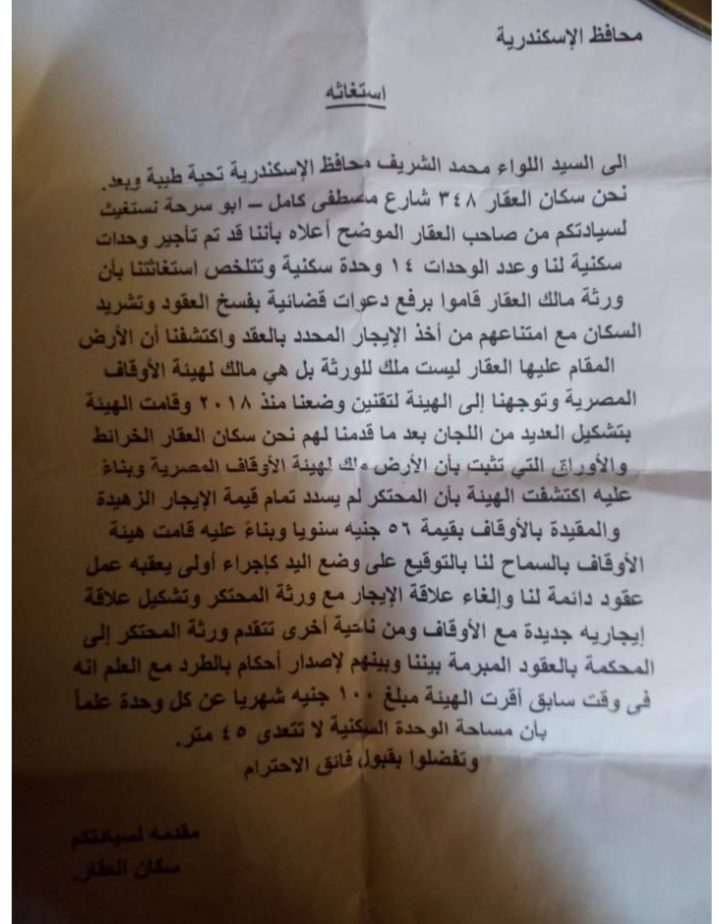 محافظ الإسكندرية
استغاثه
الى السيد اللواء محمد الشريف محافظ الإسكندرية تحية طيبة وبعد.
نحن سكان العقار ٣٤٨ شارع مصطفى كامل – ابو سرحة نستغيث
لسيادتكم من صاحب العقار الموضح أعلاه بأننا قد تم تأجير وحدات
سكنية لنا وعدد الوحدات ١٤ وحدة سكنية وتتلخص استغاثتنا بأن
ورثة مالك العقار قاموا برفع دعوات قضائية بفسخ العقود وتشريد
السكان مع امتناعهم من أخذ الإيجار المحدد بالعقد واكتشفنا أن الأرض
المقام عليها العقار ليست ملك للورثة بل هي مالك لهيئة الأوقاف
المصرية وتوجهنا إلى الهيئة لتقنين وضعنا منذ ٢٠١٨ وقامت الهيئة
بتشكيل العديد من اللجان بعد ما قدمنا لهم نحن سكان العقار الخرائط
والأوراق التي تثبت بأن الأرض ملك لهيئة الأوقاف المصرية وبناءً
عليه اكتشفت الهيئة بأن المحتكر لم يسدد تمام قيمة الإيجار الزهيدة
والمقيدة بالأوقاف بقيمة ٥٦ جنيه سنويا وبناءً عليه قامت هيئة
الأوقاف بالسماح لنا بالتوقيع على وضع اليد كإجراء أولى يعقبه عمل
عقود دائمة لنا وإلغاء علاقة الإيجار مع ورثة المحتكر وتشكيل علاقة
إيجاريه جديدة مع الأوقاف ومن ناحية أخرى تتقدم ورثة المحتكر إلى
المحكمة بالعقود المبرمة بيننا وبينهم لإصدار أحكام بالطرد مع العلم انه
فى وقت سابق أقرت الهيئة مبلغ ١٠٠ جنيه شهريا عن كل وحدة علماً
بأن مساحة الوحدة السكنية لا تتعدى ٤٥ متر.
وتفضلوا بقبول فائق الاحترام
مقدمه لسيادتكم
سكان العقار.